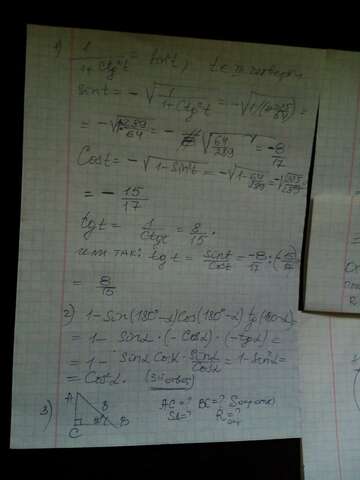 1) 1/(1+ctg²t) = sin²t, t ∈ III четверти
sin t = -√(1/(1+ctg²t)) = -√(1/(1+225/64)) =
= -√(1/(289/64)) = -√(64/289) = -8/17
Cost = -√(1-sin²t) = -√(1-64/289) = -√(225/289)
= -15/17
tgt = 1/ctgt = 8/15.
или так: tgt = sint/cost = -8/17 : (-15/17)
= 8/15
2) 1-Sin(180°-α)Cos(180°-α) tg(180°-α)
= 1- Sinα · (-Cosα) · (-tgα) =
= 1- Sinα Cosα · Sinα/Cosα = 1-Sin²α =
= Cos²α. (Это ответ)
3) A B C D
AC=? BC=?
R=?